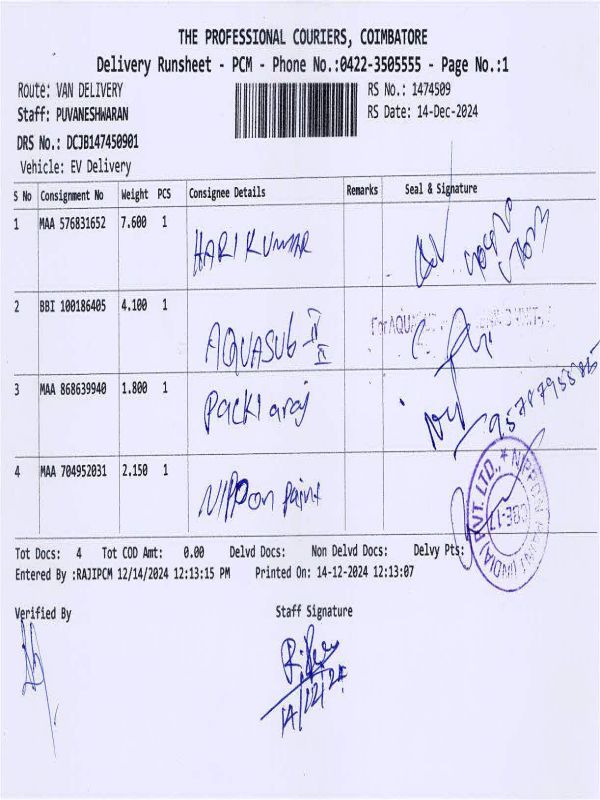 THE PROFESSIONAL COURIERS, COIMBATORE
Delivery Runsheet - PCM - Phone No.:0422-3505555 - Page No.:1
Route: VAN DELIVERY
RS No.: 1474509
Staff: PUVANESHWARAN
RS Date: 14-Dec-2024
DRS No.: DCJB147450901
Vehicle: EV Delivery
S No Consignment No Weight PCS Consignee Details Remarks Seal & Signature
1 MAA 576831652 7.600 1 HARI KUMAR
2 BBI 100186405 4.100 1 AQUASUB-II
For AQUA
3 MAA 868639940 1.800 1 Packiaraj
4 MAA 704952031 2.150 1 NIPPon paint
NIPPON PAINT (INDIA) PVT. LTD.,
Tot Docs: 4 Tot COD Amt: 0.00 Delvd Docs: Non Delvd Docs: Delvy Pts:
Entered By :RAJIPCM 12/14/2024 12:13:15 PM Printed On: 14-12-2024 12:13:07
Verified By Staff Signature
14/12/24